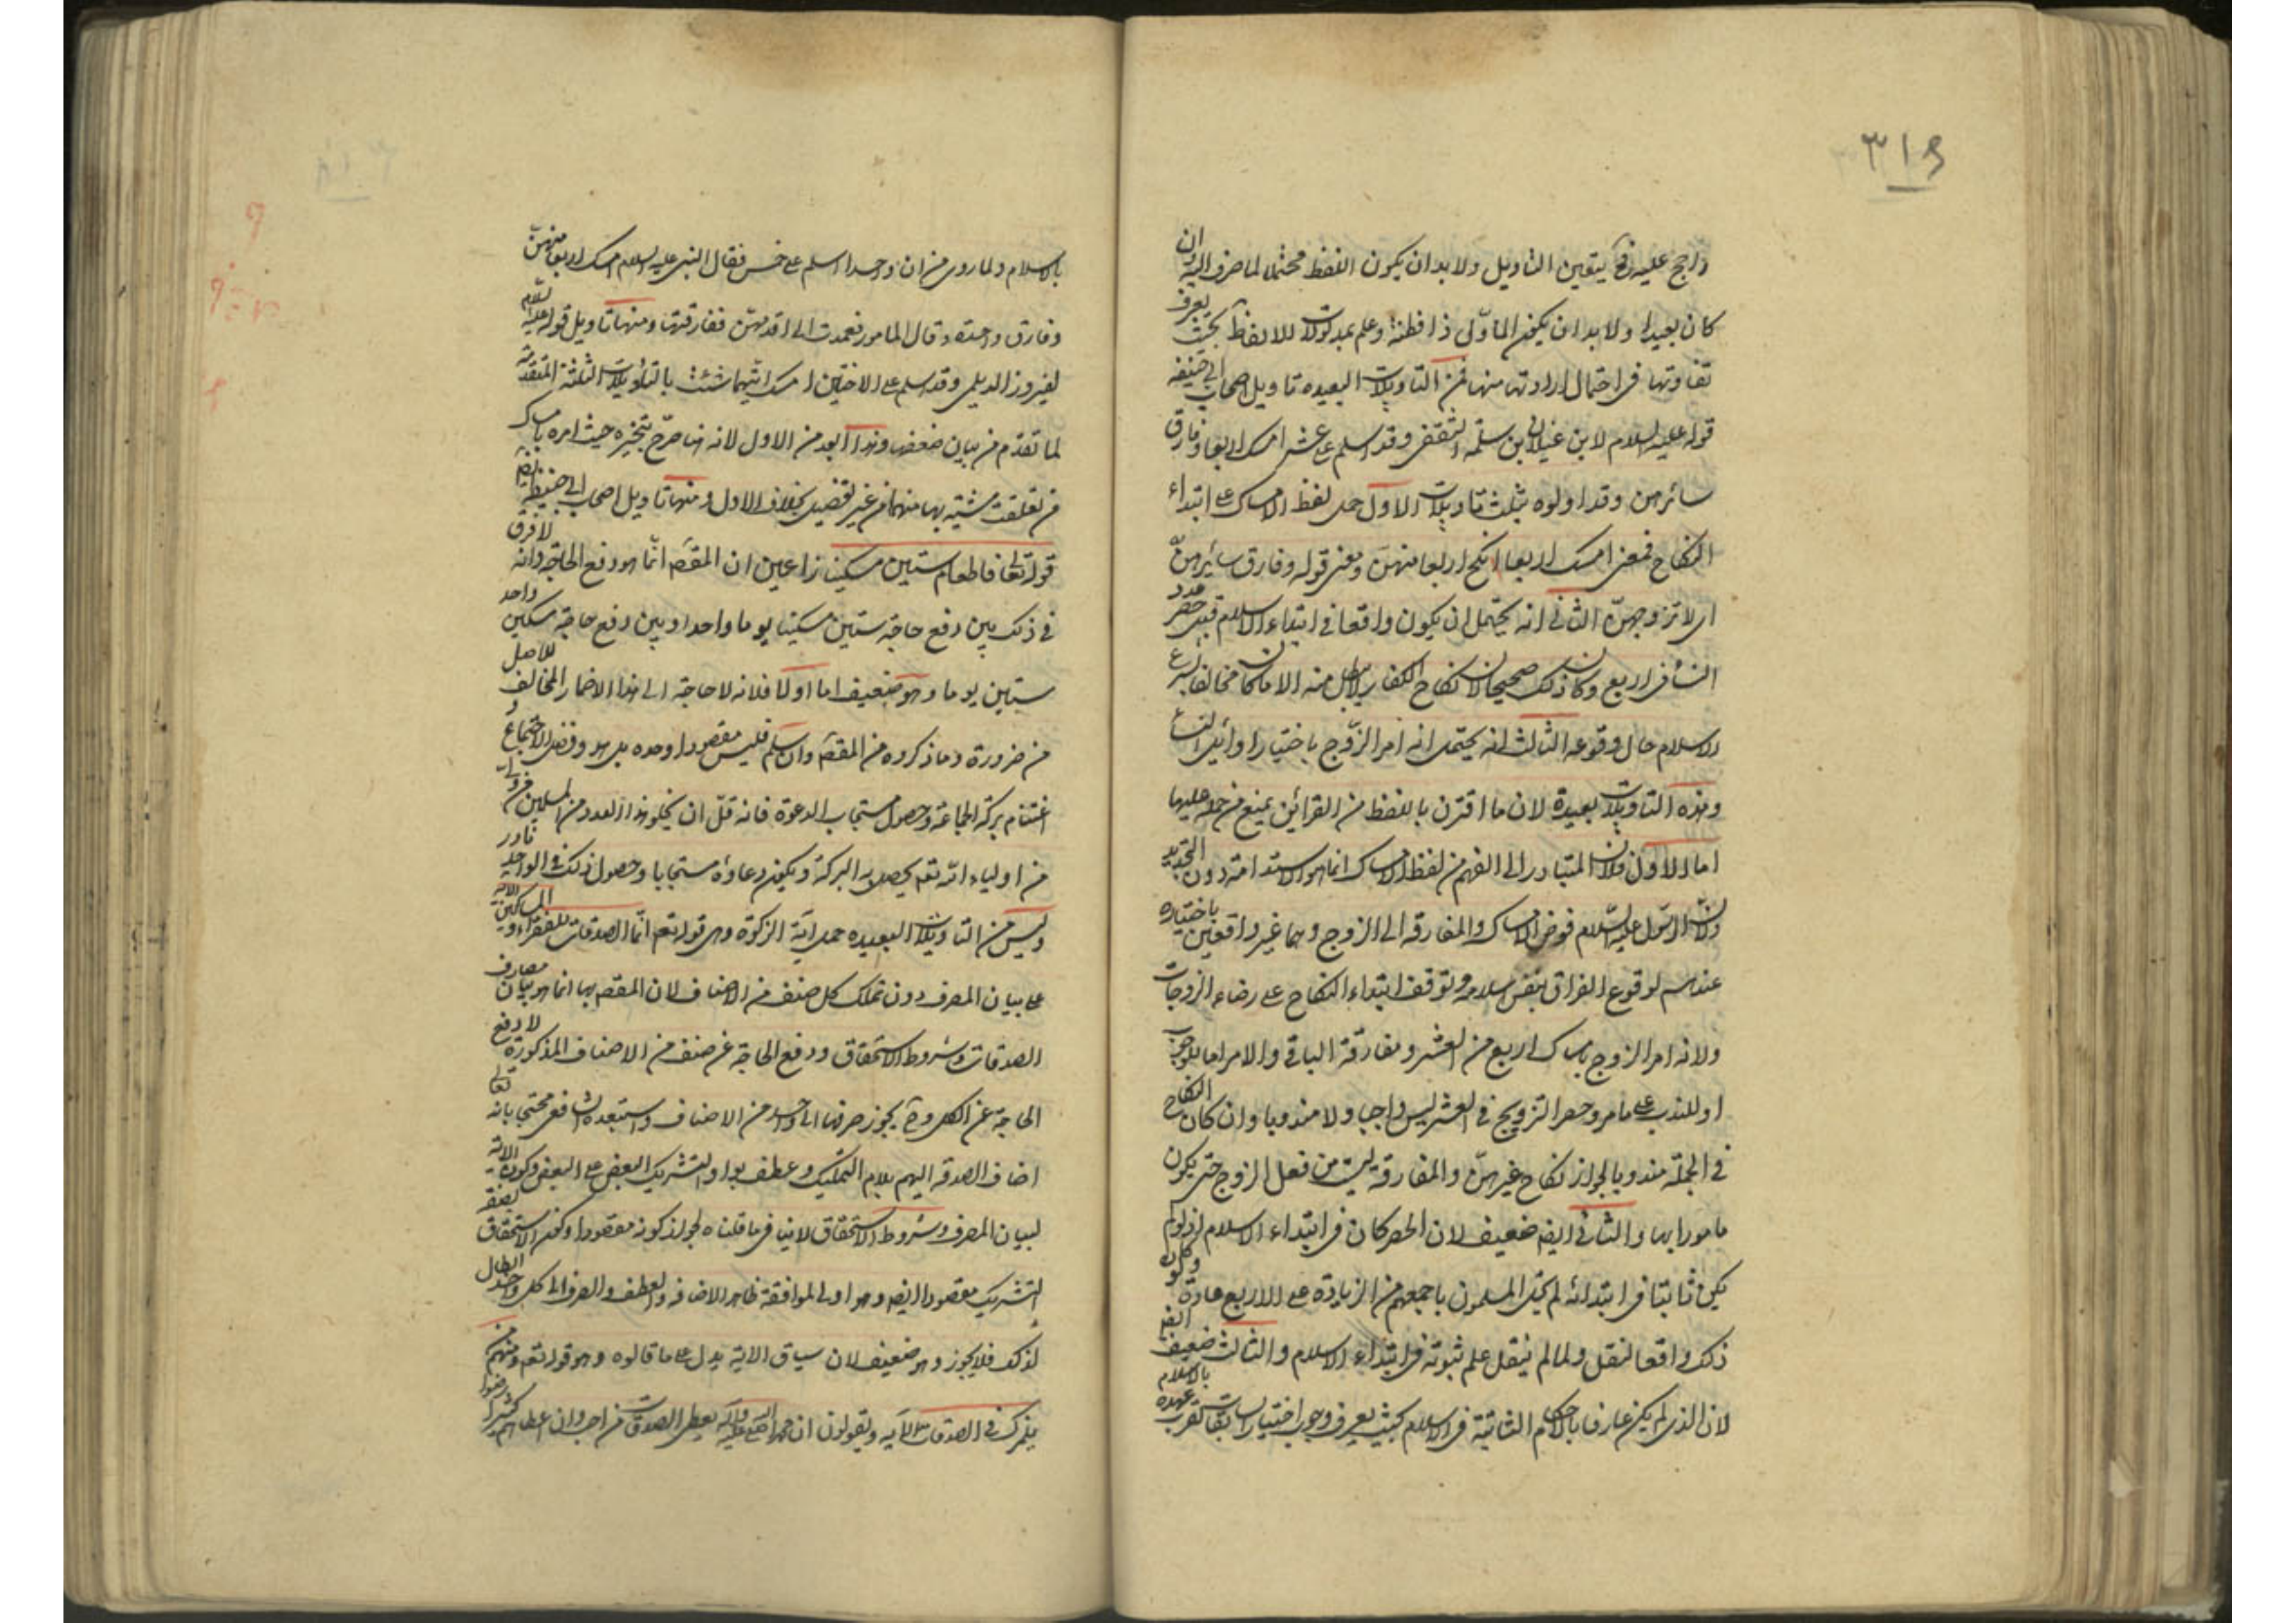 ٣١٩
راجح عليه فح يتعين التاويل ولا بد ان يكون اللفظ محتملا لما صرف اليه وان
كان بعيدا ولا بد ان يكون الماوّل ذا فطنة وعلم بمدلولات الالفاظ بحيث يعرف
تفاوتها فى احتمال ارادتها منها فمن التاويلات البعيده تاويل اصحاب ابى حنيفه
قوله عليه السلام لابن غيلان بن سلمه الثقفى وقد اسلم على عشر امسك اربعا وفارق
سائرهن وقد اولوه بثلث تاويلات الاول حمل لفظ الامساك على ابتداء
النكاح فمعنى امسك اربعا انكح اربعا منهنّ ومعنى قوله وفارق سائرهنّ
اى لا تزوجهنّ الثانى انه يحتمل ان يكون واقعا فى ابتداء الاسلام قبل حصر عدد
النساء فى اربع وكان ذلك صحيحا لان نكاح الكفار لا يبطل منه الا ما كان مخالفا لشرع
الاسلام حال وقوعه الثالث انه يحتمل انه امر الزوج باختيار اوائل النساء
وهذه التاويلات بعيدة لان ما اقترن باللفظ من القرائن يمنع من حمله عليها
اما الاول فلان المتبادر الى الفهم من لفظ الامساك انما هو الاستدامة دون التجديد
ولان الرسول عليه السلام فوض الامساك والمفارقه الى الزوج وهما غير واقعين باختياره
عندهم لوقوع الفراق بنفس اسلامه وتوقف ابتداء النكاح على رضاء الزوجات
ولانه امر الزوج بامساك اربع من العشر ومفارقة الباقى والامر اما للوجوب
او للندب على ما مر وحصر التزويج فى العشر ليس واجبا ولا مندوبا وان كان النكاح
فى الجملة مندوبا لجواز نكاح غيرهنّ والمفارقة ليست من فعل الزوج حتى يكون
مامورا بها والثانى ايضا ضعيف لان الحصر كان فى ابتداء الاسلام اذ لو لم
يكن ثابتا فى ابتدائه لم يخل المسلمون باجمعهم من الزيادة على الاربع عادة ولو كان
ذلك واقعا لنقل ولما لم ينقل علم ثبوته فى ابتداء الاسلام والثالث ضعيف ايضا
لان الذى لم يكن عارفا باحكام الثابتة فى الاسلام كيف يعرف وجوب اختيار السابقات لقرب عهده بالاسلام
بالاسلام ولما روى من ان واحدا اسلم على خمس فقال النبى عليه السلام امسك اربعا منهنّ
وفارق واحدة وقال المامور فعمدت الى اقدمهن ففارقتها ومنها تاويل قوله عليه السلام
لفيروز الديلمى وقد اسلم على الاختين امسك ايتهما شئت بالتاويلات الثلثة المتقدمة
لما تقدم من بيان ضعفها وهذا ابعد من الاول لانه هنا صرّح بتخيره حيث امره بامساك
من تعلقت مشيته بها منهما من غير تفصيل بخلاف الاول ومنها تاويل اصحاب ابى حنيفة ايضا
قوله تعالى فاطعام ستين مسكينا زاعمين ان المقصود انّما هو دفع الحاجة وانه لا فرق
فى ذلك بين دفع حاجة ستين مسكينا يوما واحدا وبين دفع حاجة مسكين واحد
ستين يوما وهو ضعيف اما اولا فلانه لا حاجة الى هذا الاضمار المخالف للاصل
من ضرورة وما ذكروه من المقصود وان سلم فليس مقصودا وحده بل هو وفضل الاجتماع و
اغتنام بركة الجماعة وحصول مستجاب الدعوة فانه قلّ ان يخلو هذا العدد من المسلمين من ولى
من اولياء الله تعم يحصل به البركة ويكون دعاؤه مستجابا وحصول ذلك فى الواحد نادر
وليس من التاويلات البعيده حمل اية الزكوة وهى قوله تعم انّما الصدقات للفقراء والمساكين الاية
على بيان المصرف دون تملك كل صنف من الاصناف لان المقصود بها انما هو بيان مصارف
الصدقات وشروط الاستحقاق ودفع الحاجة عن صنف من الاصناف المذكورة لا دفع
الحاجة عن الكل وح يجوز صرفها الى واحد من الاصناف واستبعده الشافعى محتجا بانه تعالى
اضاف الصدقه اليهم بلام التمليك وعطف بواو التشريك البعض على البعض وكون الاية
لبيان المصرف وشروط الاستحقاق لا ينافى ما قلناه لجواز كونه مقصودا وكون الاستحقاق بصفة
التشريك مقصودا ايضا وهو اولى لموافقة ظاهر الاضافة والعطف والصرف الى كل واحد ابطال
لذلك فلا يجوز وهو ضعيف لان سياق الاية يدل على ما قالوه وهو قوله تعم ومنهم من
يلمزك فى الصدقات الاية ويقولون ان محمدا صلى الله عليه وآله يعطى الصدقات من احب وان اعطاهم كثيرا رضوا